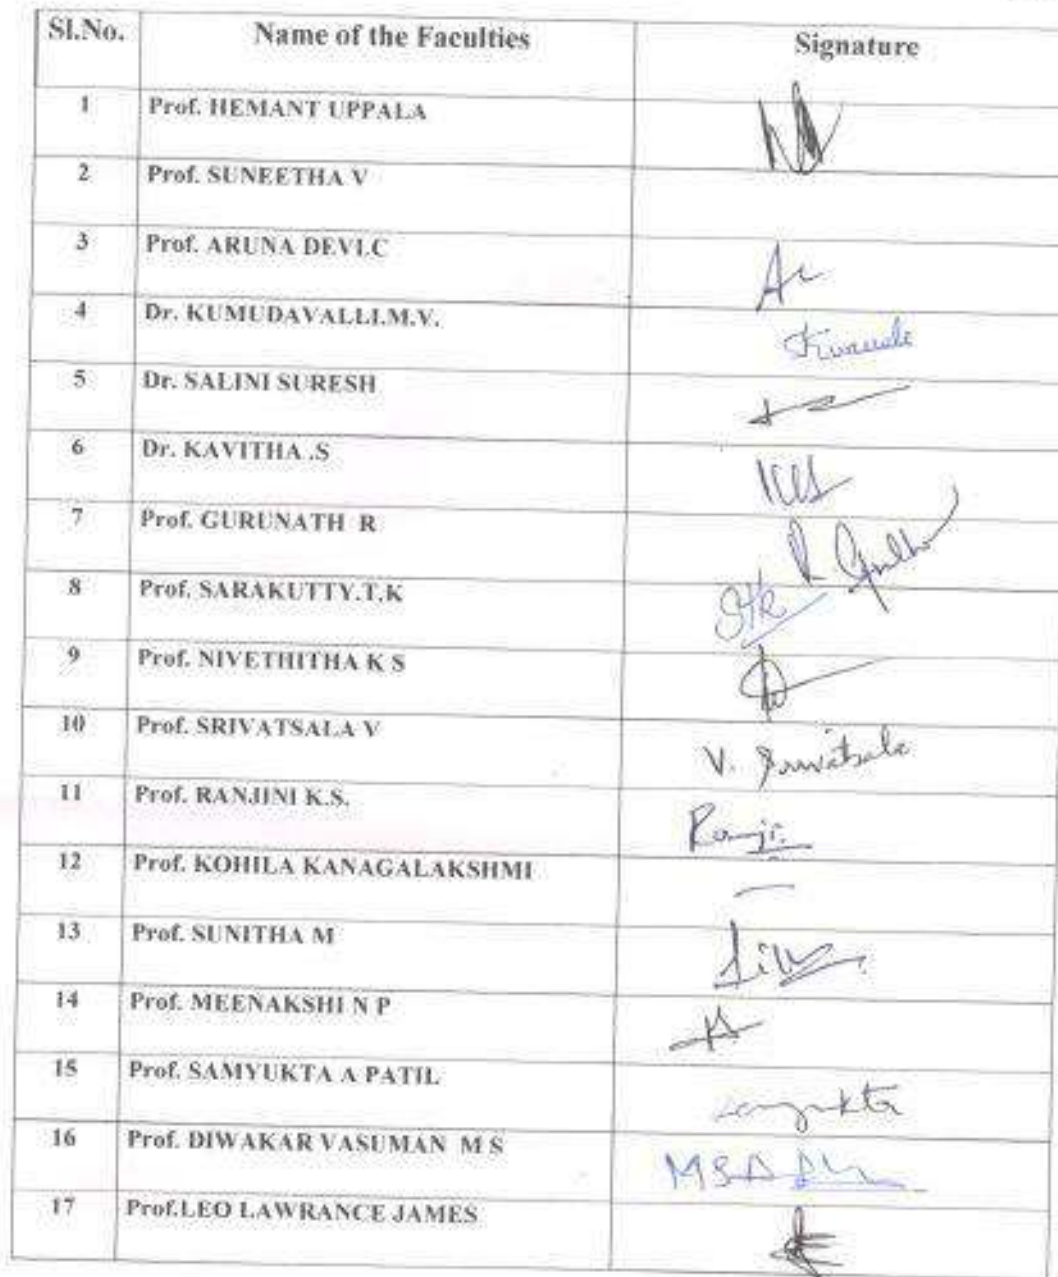 Sl.No. Name of the Faculties Signature
1 Prof. HEMANT UPPALA
2 Prof. SUNEETHA V
3 Prof. ARUNA DEVI.C
4 Dr. KUMUDAVALLI.M.V.
5 Dr. SALINI SURESH
6 Dr. KAVITHA .S
7 Prof. GURUNATH R
8 Prof. SARAKUTTY.T.K
9 Prof. NIVETHITHA K S
10 Prof. SRIVATSALA V V. Srivatsala
11 Prof. RANJINI K.S.
12 Prof. KOHILA KANAGALAKSHMI
13 Prof. SUNITHA M
14 Prof. MEENAKSHI N P
15 Prof. SAMYUKTA A PATIL
16 Prof. DIWAKAR VASUMAN M S
17 Prof.LEO LAWRANCE JAMES